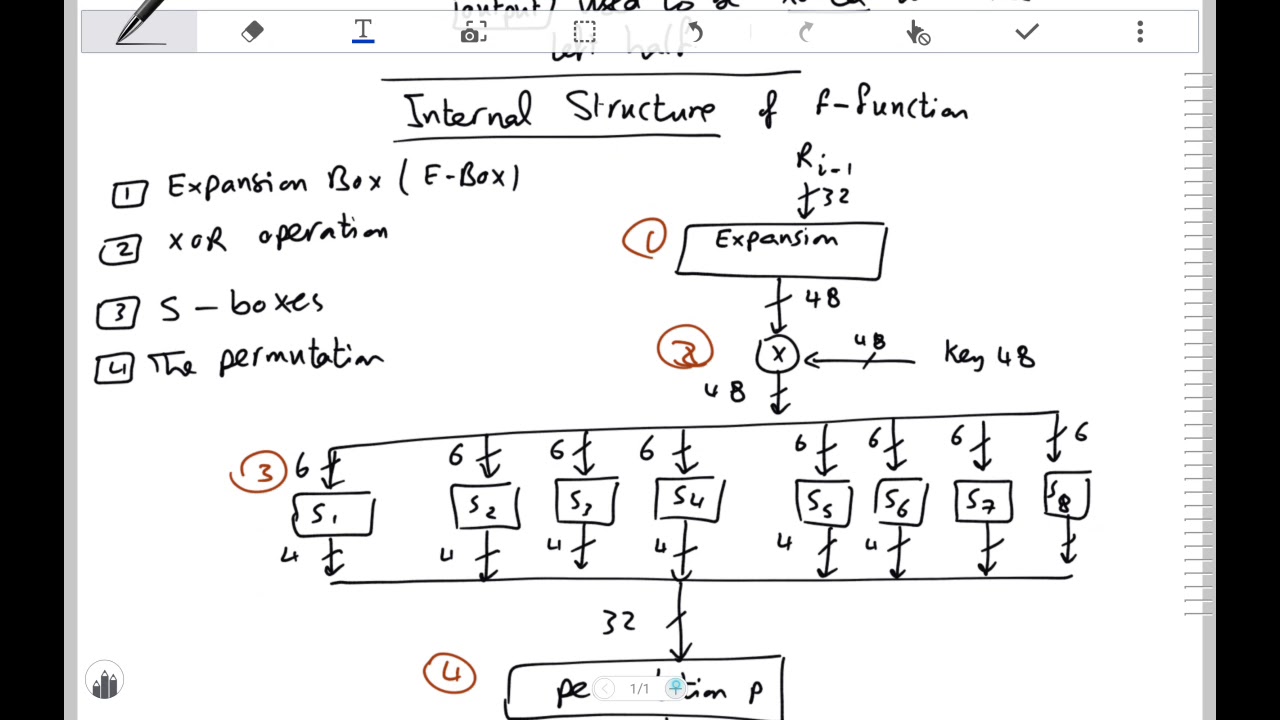 (output) used to
left half
Internal Structure of f-function
1 Expansion Box (E-Box)
2 XOR operation
3 S-boxes
4 The permutation
R i-1
32
1 Expansion
48
2 X 48 Key 48
48
3 6 6 6 6 6 6 6 6
S1 S2 S3 S4 S5 S6 S7 S8
4 4 4 4 4 4
32
4 pe tion P
1/1